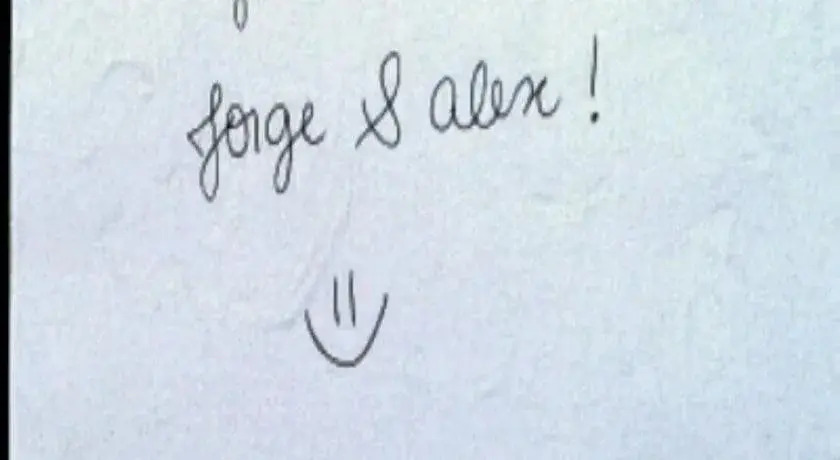 Jorge & alex!